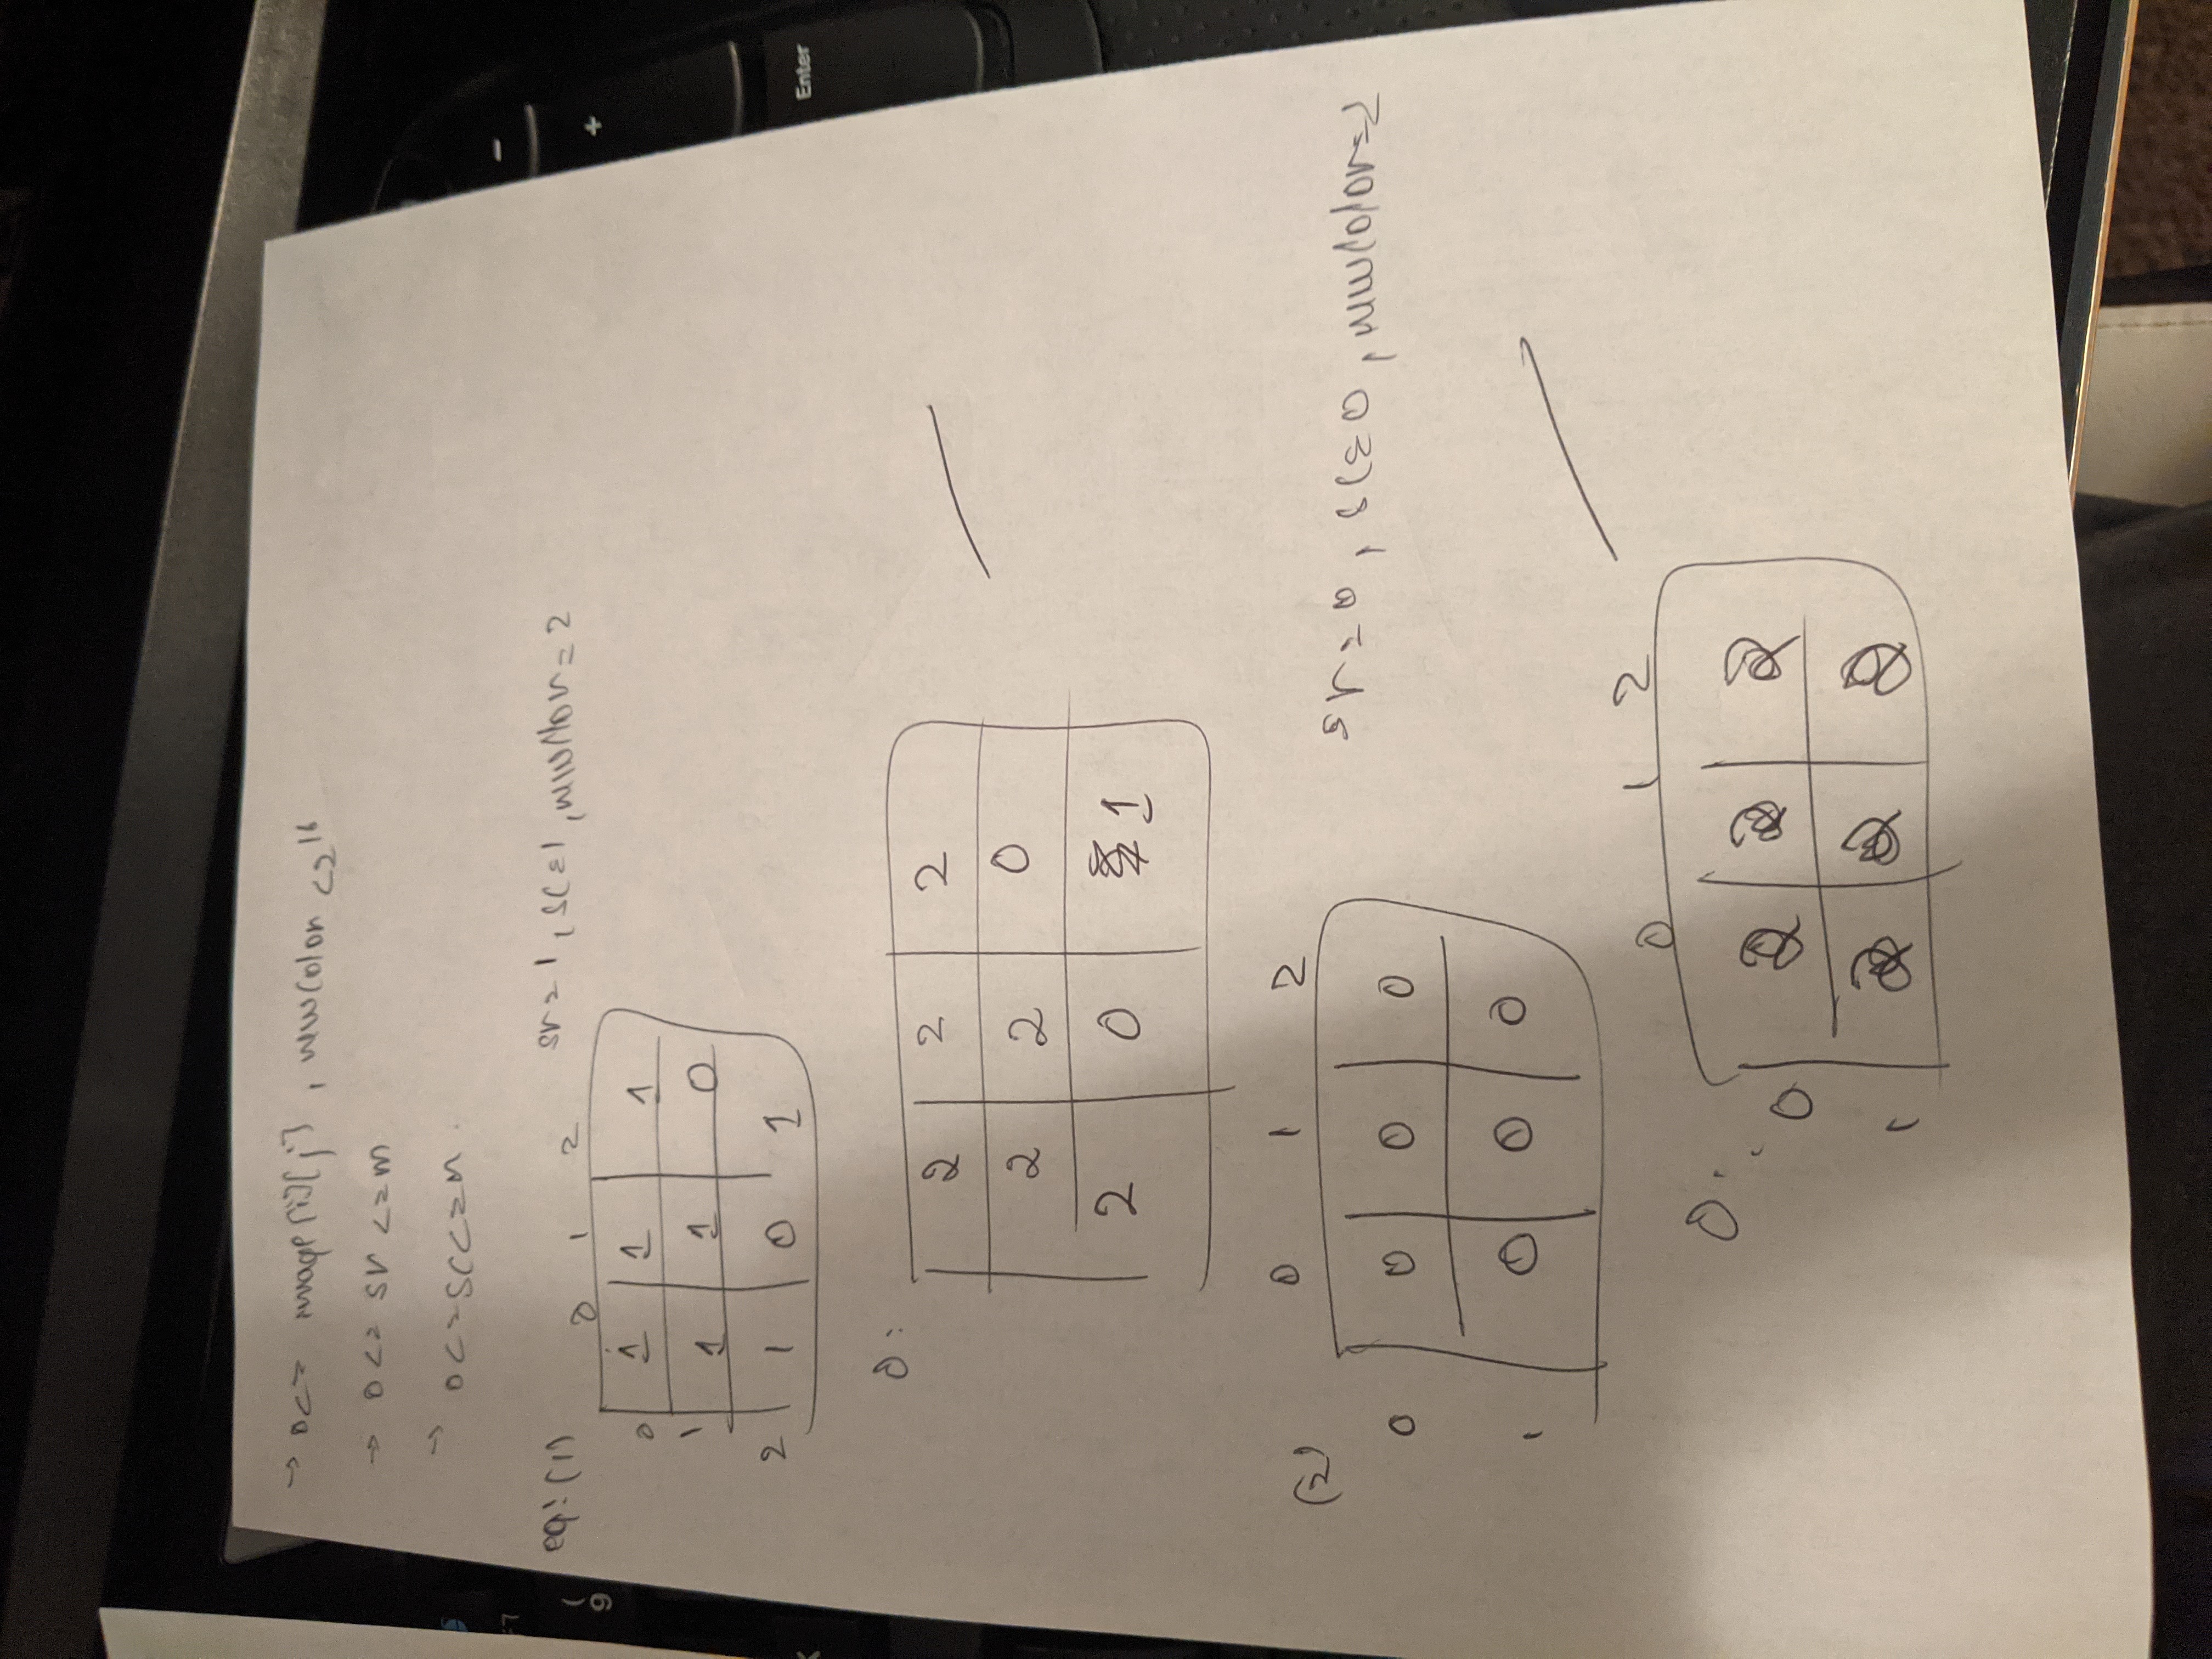 → 0<= image[i][j], newColor <2^16
→ 0<= sr <=m
→ 0<=sc<=n.
eg:(1) sr=1, sc=1, newColor=2
0 1 2
0 1 1 1
1 1 1 0
2 1 0 1
O:
2 2 2
2 2 0
2 0 1
(2) 0 1 2
sr=0, sc=0, newColor=2
0 0 0 0
1 0 0 0
0 1 2
O:
0 2 2 2
1 2 2 2
F7
( 
9
-
+
Enter